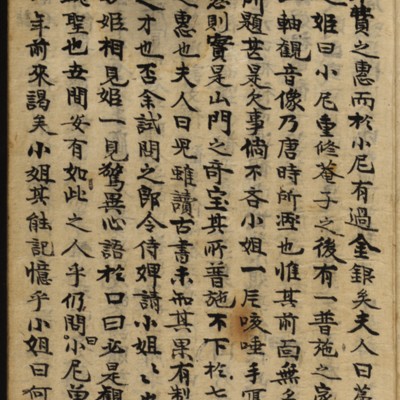 費之惠而於小尼有過金銀矣夫人曰
姬曰小尼重修菴子之後有一普施之家
軸觀音像乃唐時所画也惟其前面無
所題甚是欠事倘不吝小姐一尺咳唾手寫
則實是山門之奇宝其所普施不下於七
之惠也夫人曰兒雖讀古書未知其果有制
之才也否余試問之即令侍婢請小姐〻〻
姬相見姬一見驚異心語於口曰必是觀
聖也世間安有如此之人乎仍問曰小尼曾
年前來謁矣小姐其能記憶乎小姐曰何